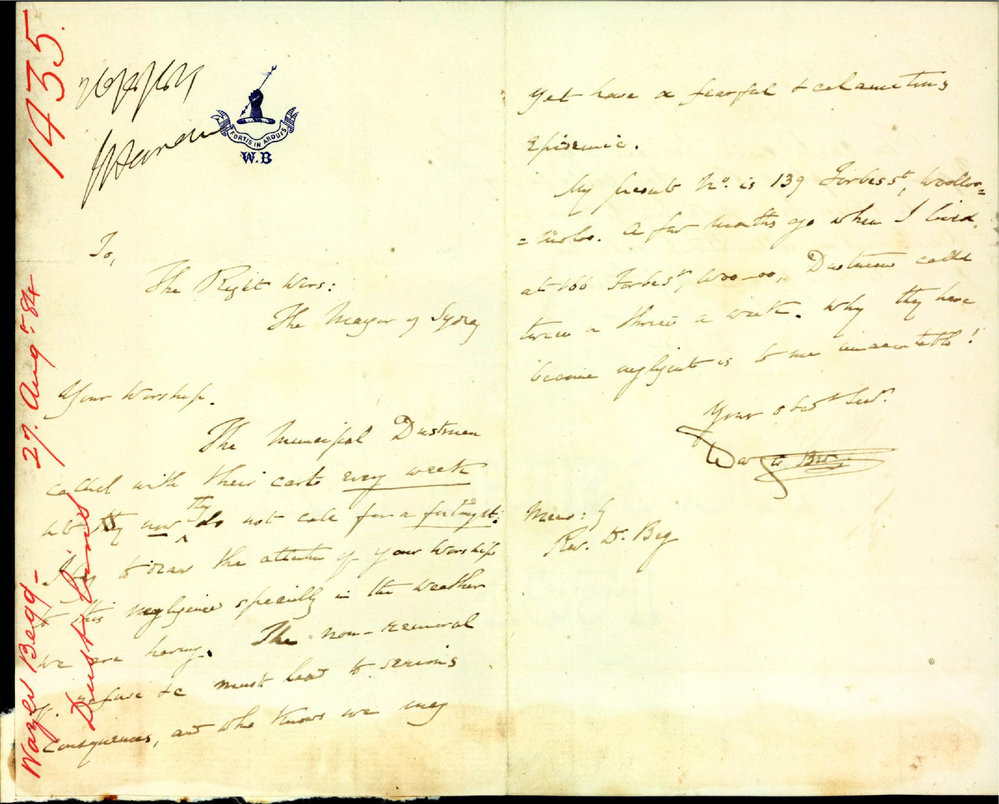 1435.
27. Augt 84
Wazir Begg -
Dust Bins
FORTIS IN ARDUIS
W.B
To,
The Right Wors:
The Mayor of Sydney
Your Worship.
The Municipal Dustmen
called with their carts every week
but now they do not call for a fortnight:
I beg to draw the attention of your Worship
to this negligence specially in the weather
we are having. The non-removal
of refuse &c must lead to serious
consequences, and who knows we may
yet have a fearful & calamitous
epidemic.
My present No. is 139 Forbes St, Woolloo=
=mooloo. A few months ago when I lived
at 166 Forbes St, Woo-oo, Dustmen called
twice or thrice a week. Why they have
become negligent is to me unaccountable!
Your obedt Servt.
Wazir Beg.
Memo:
Rev. Dr. Beg